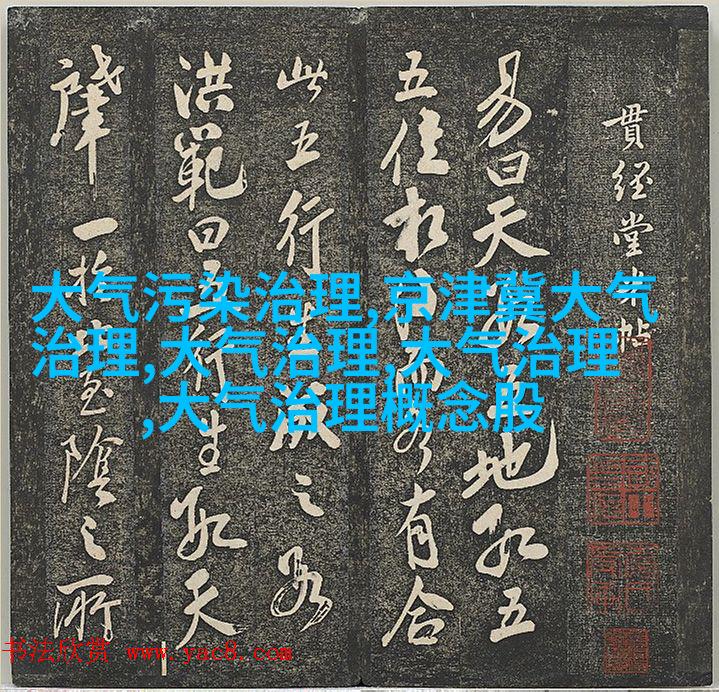 貫經堂米帖
易曰天數五地數五
五位相各有合
此五行生成之數
洪範曰五行生數天
一陰之所
大气污染治理,京津冀大气
治理,大气治理,大气治理
,大气治理概念股
书法欣赏 www.yac8.com